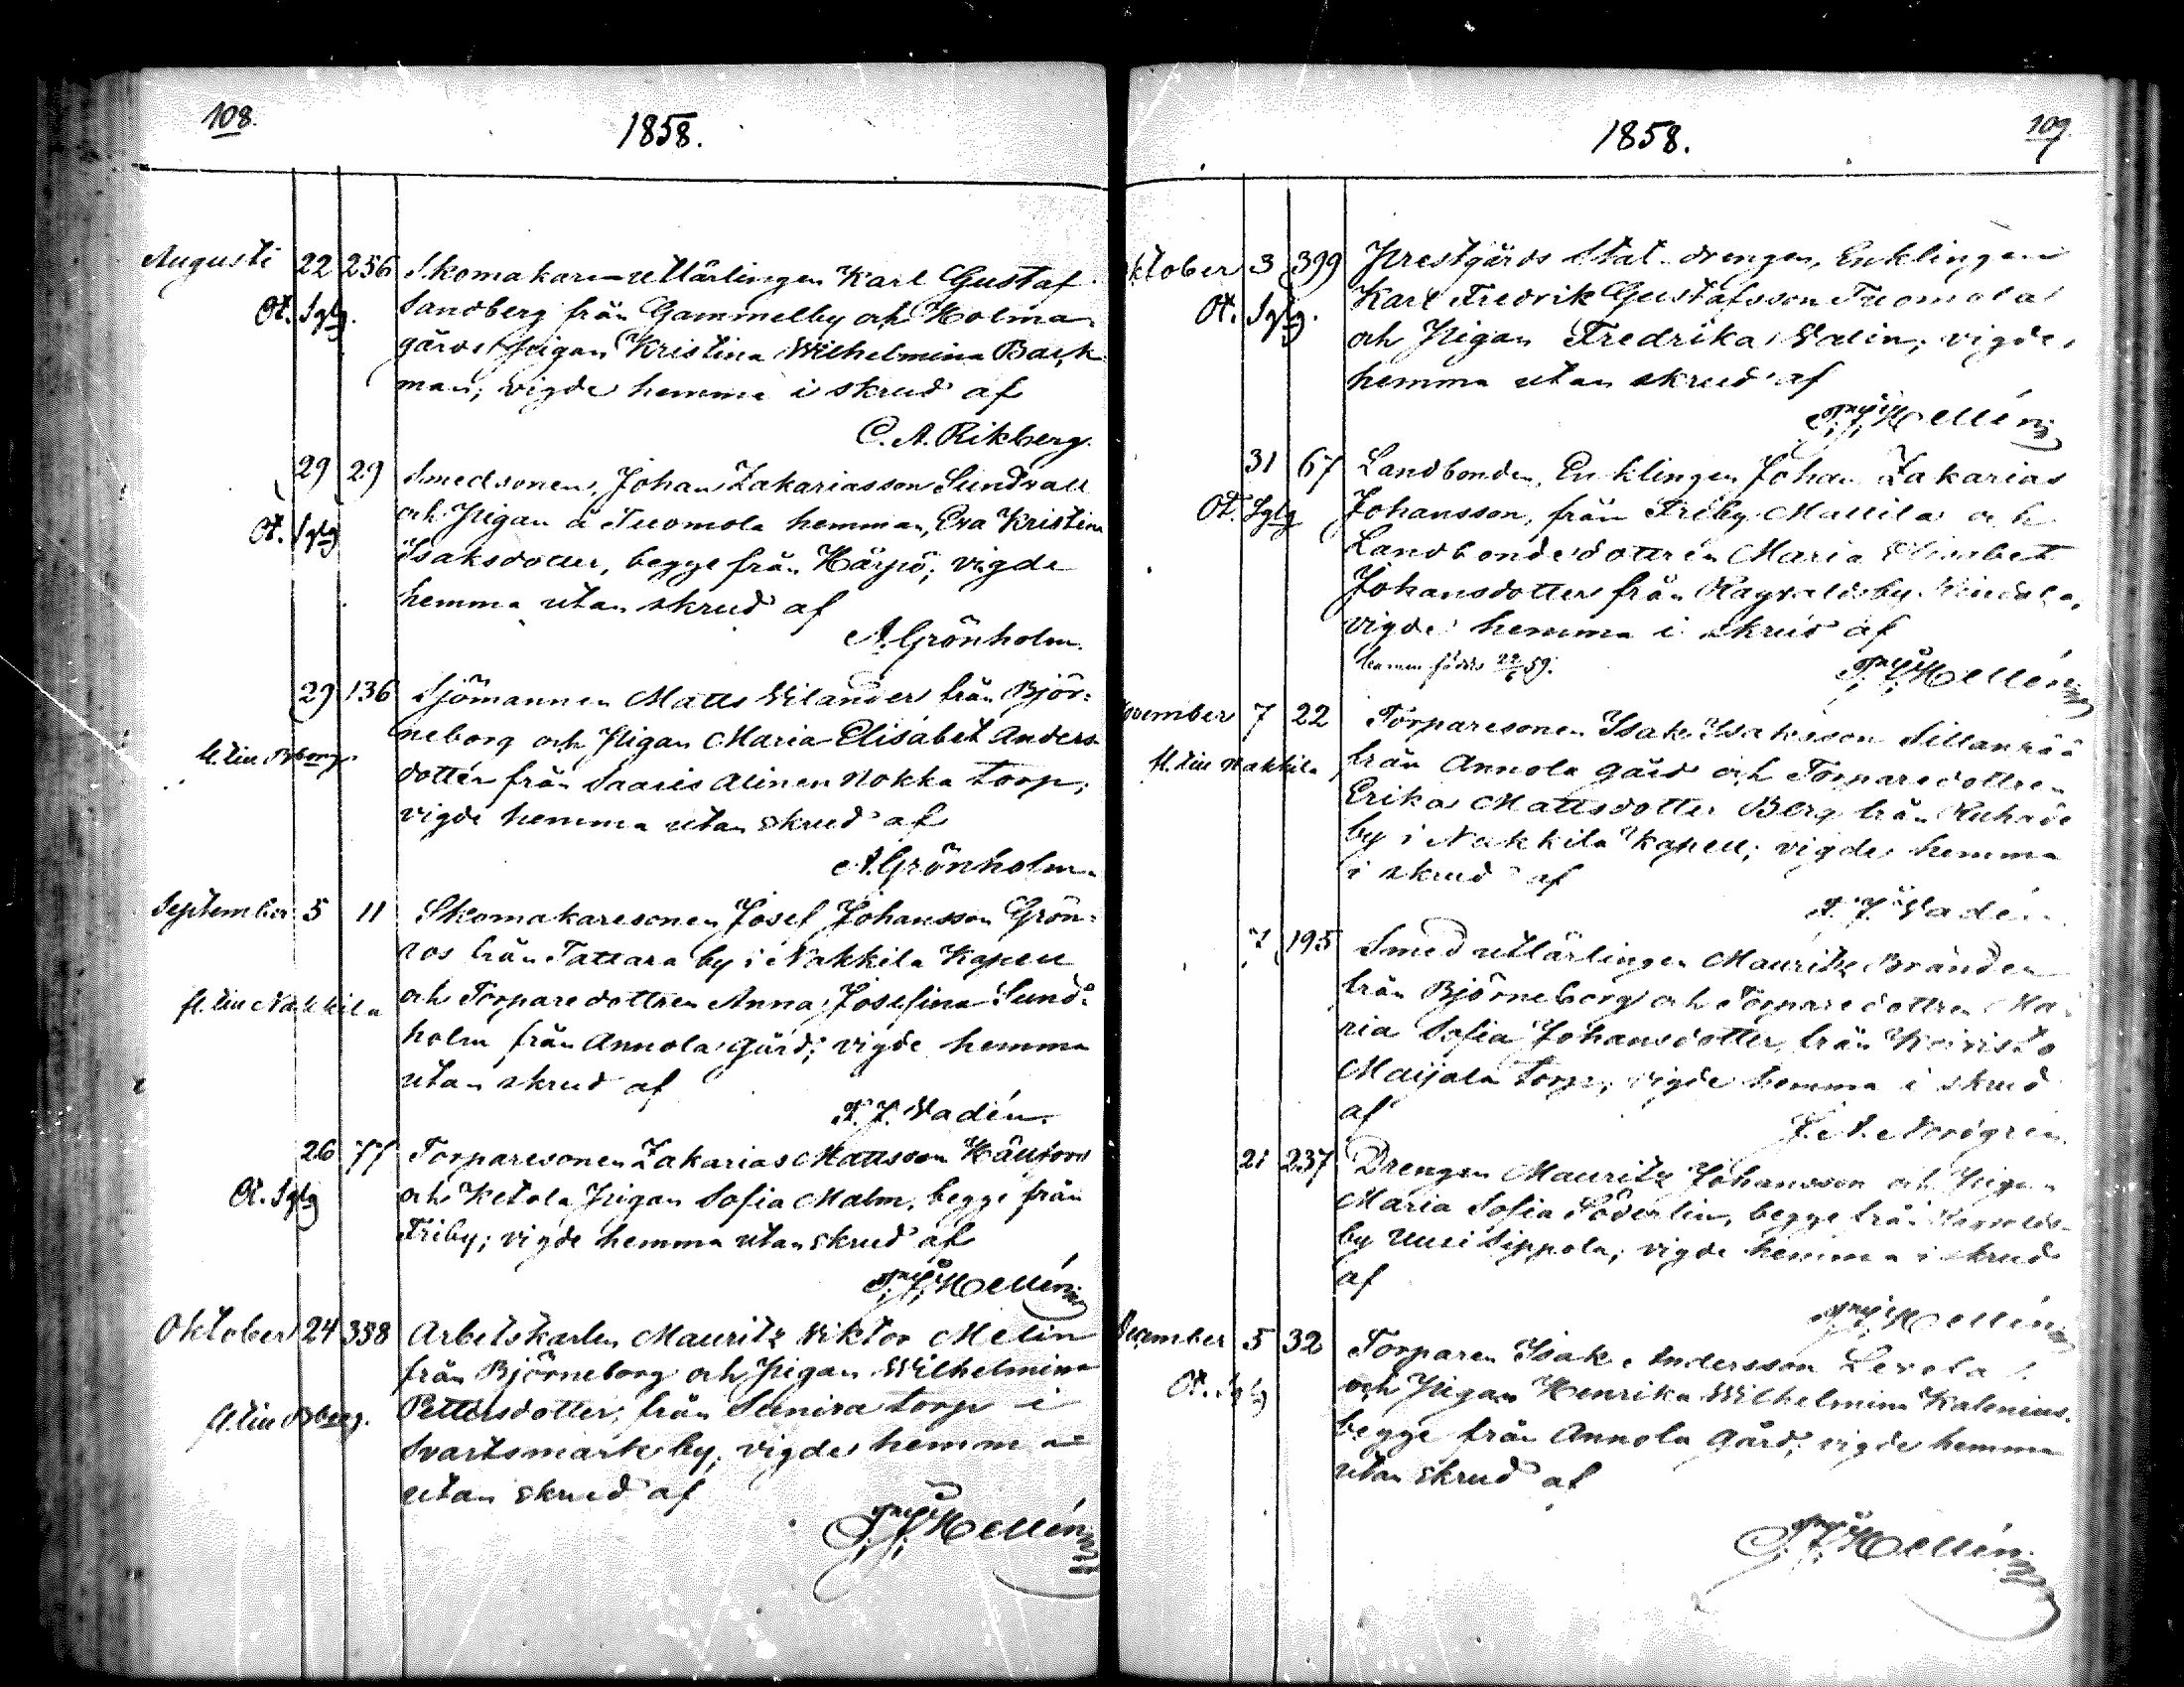 108.
1858.
Augusti 22 256 Skomakare-utlärlingen Karl Gustaf
Ot. Sglg. Sandberg från Gammelby och Holma
gårds Pigan Kristina Wilhelmina Back
man; vigde hemma i skrud af
C. A. Rikberg.
29 29 Smedsonen, Johan Zakariasson Sundvall
Ot. Sglg och Pigan å Tuomola hemman, Eva Kristina
Isaksdotter, begge från Härpö; vigde
hemma utan skrud af
A. Grönholm.
29 136 Sjömannen Matts Vilander från Björ-
neborg och Pigan Maria Elisabet Anders
fl. till Bborg. dotter från Saaris Alinen Nokka torp;
vigde hemma utan skrud af
A. Grönholm.
September 5 11 Skomakaresonen Josef Johansson Grön-
ros från Tattara by i Nakkila Kapell
fl. till Nakkila och Torparedottren Anna Josefina Sund-
holm från Annola Gård; vigde hemma
utan skrud af
F. J. Vadén.
26 77 Torparesonen Zakarias Mattsson
Ot. Sglg och Ketola Pigan Sofia Malm, begge från
Friby; vigde hemma utan skrud af
Hellén
Oktober 24 338 Arbetskarlen Mauritz Viktor Melin
från Björneborg och Pigan Wilhelmina
fl. till Bborg. Pettersdotter, från Sunira torp i
Svartsmark by, vigde hemma
utan skrud af
Hellén
1858.
109.
ktober 3 399 Prestgårds Stat-drengen, Enklingen
Ot. Sglg. Karl Fredrik Gustafsson Tuomola
och Pigan Fredrika Valin; vigde,
hemma utan skrud af
Hellén
31 67 Landbonden, Enklingen Johan Zakarias
Ot. Sglg Johansson, från Friby Mattila och
Landbondedottren Maria Elisabet
Johansdotter från Ragvaldsby
vigde hemma i skrud af
Hellén
vember 7 22 Torparesonen Isak Isaksson Sillanpää
fl. till Nakkila från Annola gård och Torparedottren
Erika Mattsdotter Berg från Ruhade
by i Nakkila Kapell; vigde hemma
i skrud af
F. J. Vadén.
7 195 Smedutlärlingen Mauritz Brander
från Björneborg och Torparedottren Ma-
ria Sofia Johansdotter, från Koivisto
Maijala torp, vigde hemma i skrud
af
J. A. Nordgren
21 237 Drengen Mauritz Johansson och Pigan
Maria Sofia Söderlin, begge från Ragvalds-
by Uusi Sippola; vigde hemma i skrud
af
Hellén
December 5 32 Torparen Isak Andersson Levola
Ot. Sglg och Pigan Henrika Wilhelmina Kalenius
begge från Annola Gård; vigde hemma
utan skrud af
Hellén